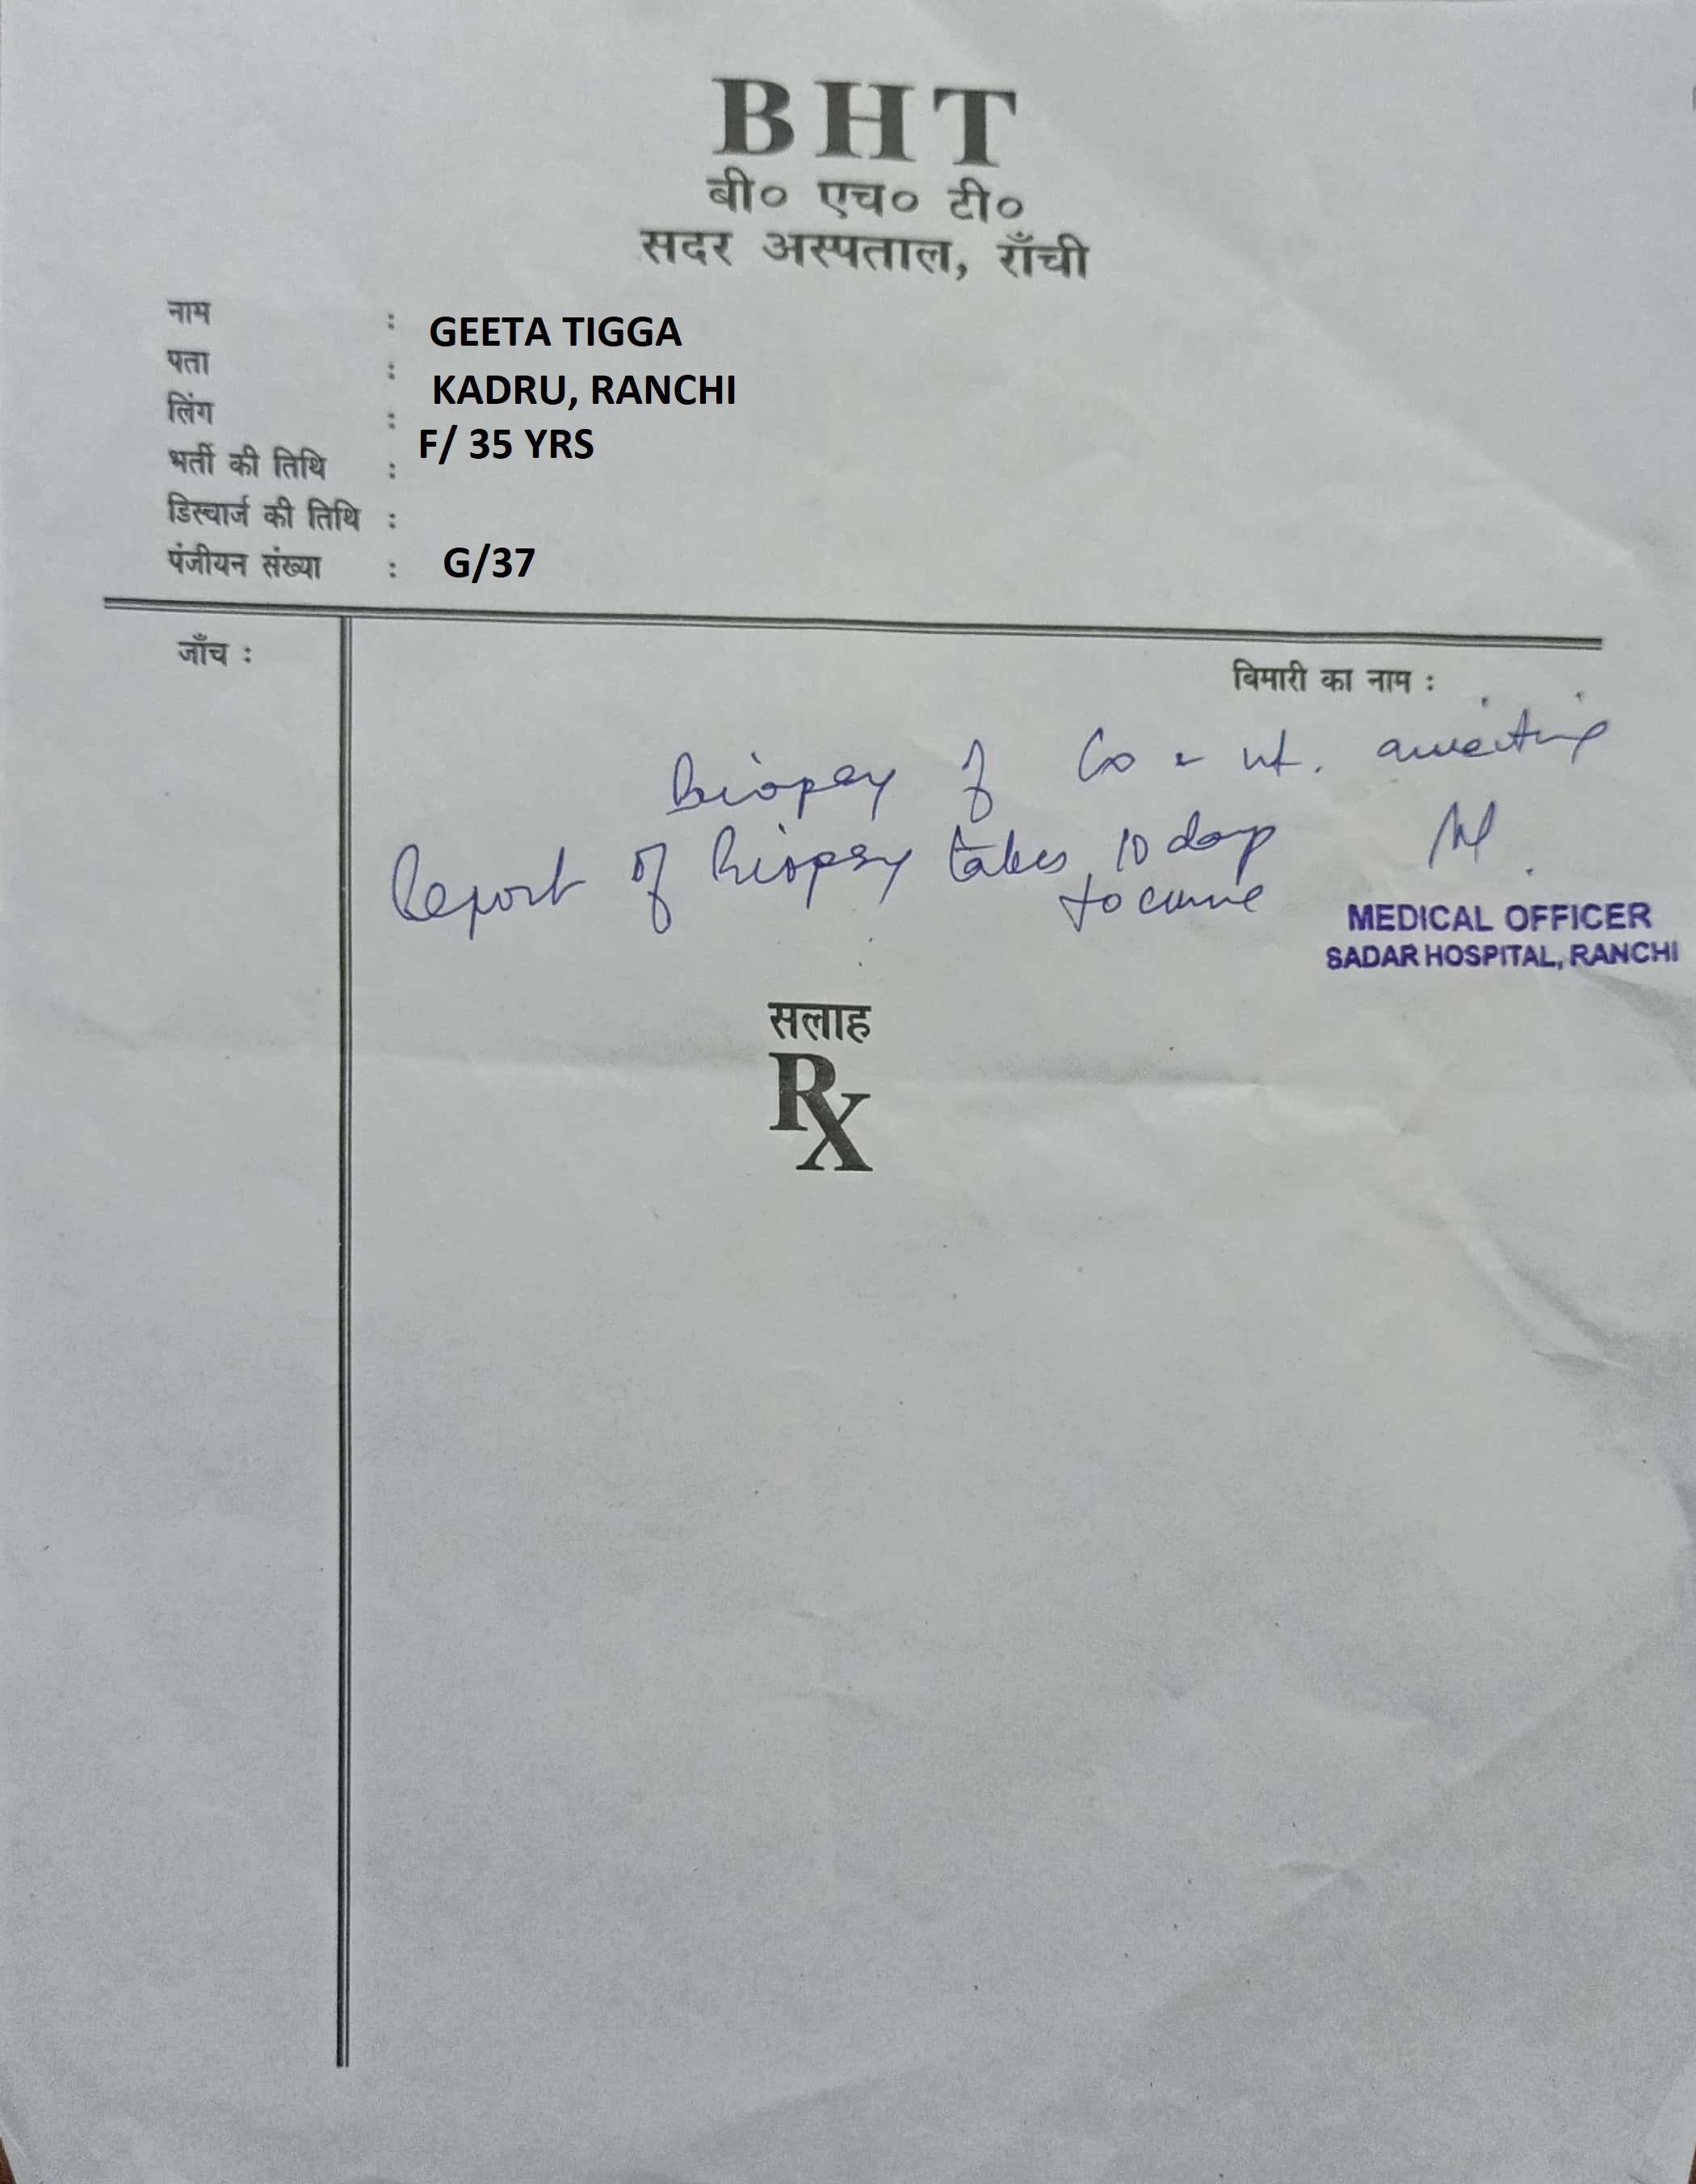 BHT
बी० एच० टी०
सदर अस्पताल, राँची
नाम : GEETA TIGGA
पता : KADRU, RANCHI
लिंग : F/ 35 YRS
भर्ती की तिथि :
डिस्चार्ज की तिथि :
पंजीयन संख्या : G/37
जाँच :
बिमारी का नाम :
Biopsy of Cx & ut. awaiting
Report of Biopsy takes 10 days
to come
MEDICAL OFFICER
SADAR HOSPITAL, RANCHI
सलाह
Rx